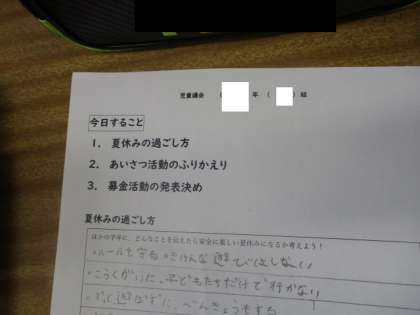 児童議会 ( 年 ( ) 組
今日すること
1. 夏休みの過ごし方
2. あいさつ活動のふりかえり
3. 募金活動の発表決め
夏休みの過ごし方
ほかの学年に、どんなことを伝えたら安全に楽しい夏休みになるか考えよう！
・ルールを守る ・きけんな遊びはしない
・こうくがいに、子どもたちだけで行かない
遊ばずに、べんきょうもする